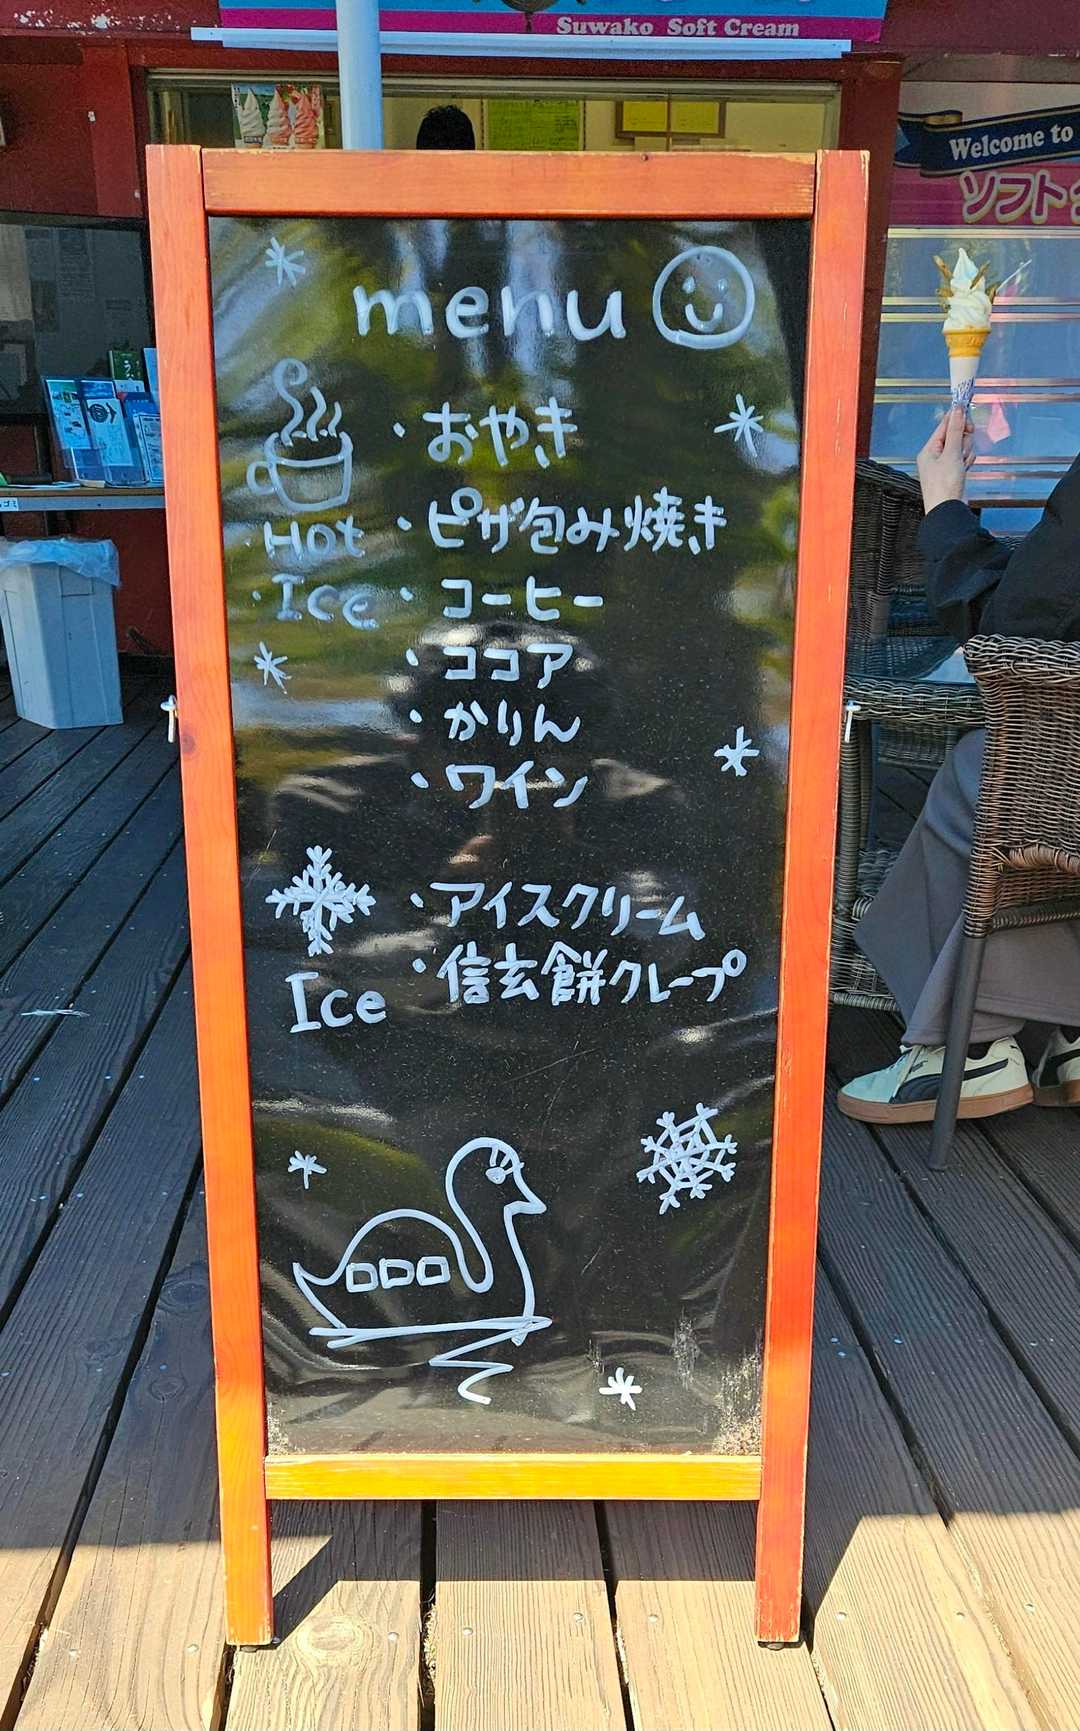 Suwako Soft Cream
Welcome to
ソフト
menu
・おやき
Hot ・ピザ包み焼き
・Ice ・コーヒー
・ココア
・かりん
・ワイン
・アイスクリーム
Ice ・信玄餅クレープ